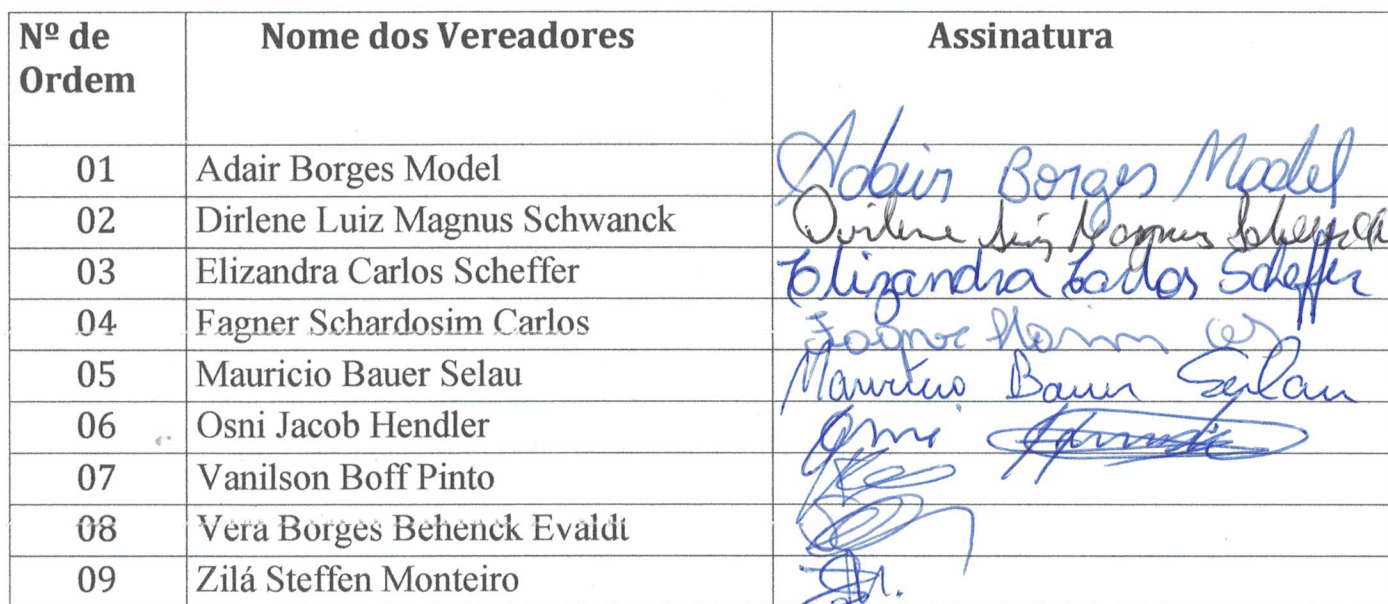 Nº de Ordem Nome dos Vereadores Assinatura
01 Adair Borges Model Adair Borges Model
02 Dirlene Luiz Magnus Schwanck Dirlene Luiz Magnus
03 Elizandra Carlos Scheffer Elizandra Carlos Scheffer
04 Fagner Schardosim Carlos Fagner
05 Mauricio Bauer Selau Mauricio Bauer Selau
06 Osni Jacob Hendler Osni
07 Vanilson Boff Pinto
08 Vera Borges Behenck Evaldt
09 Zilá Steffen Monteiro